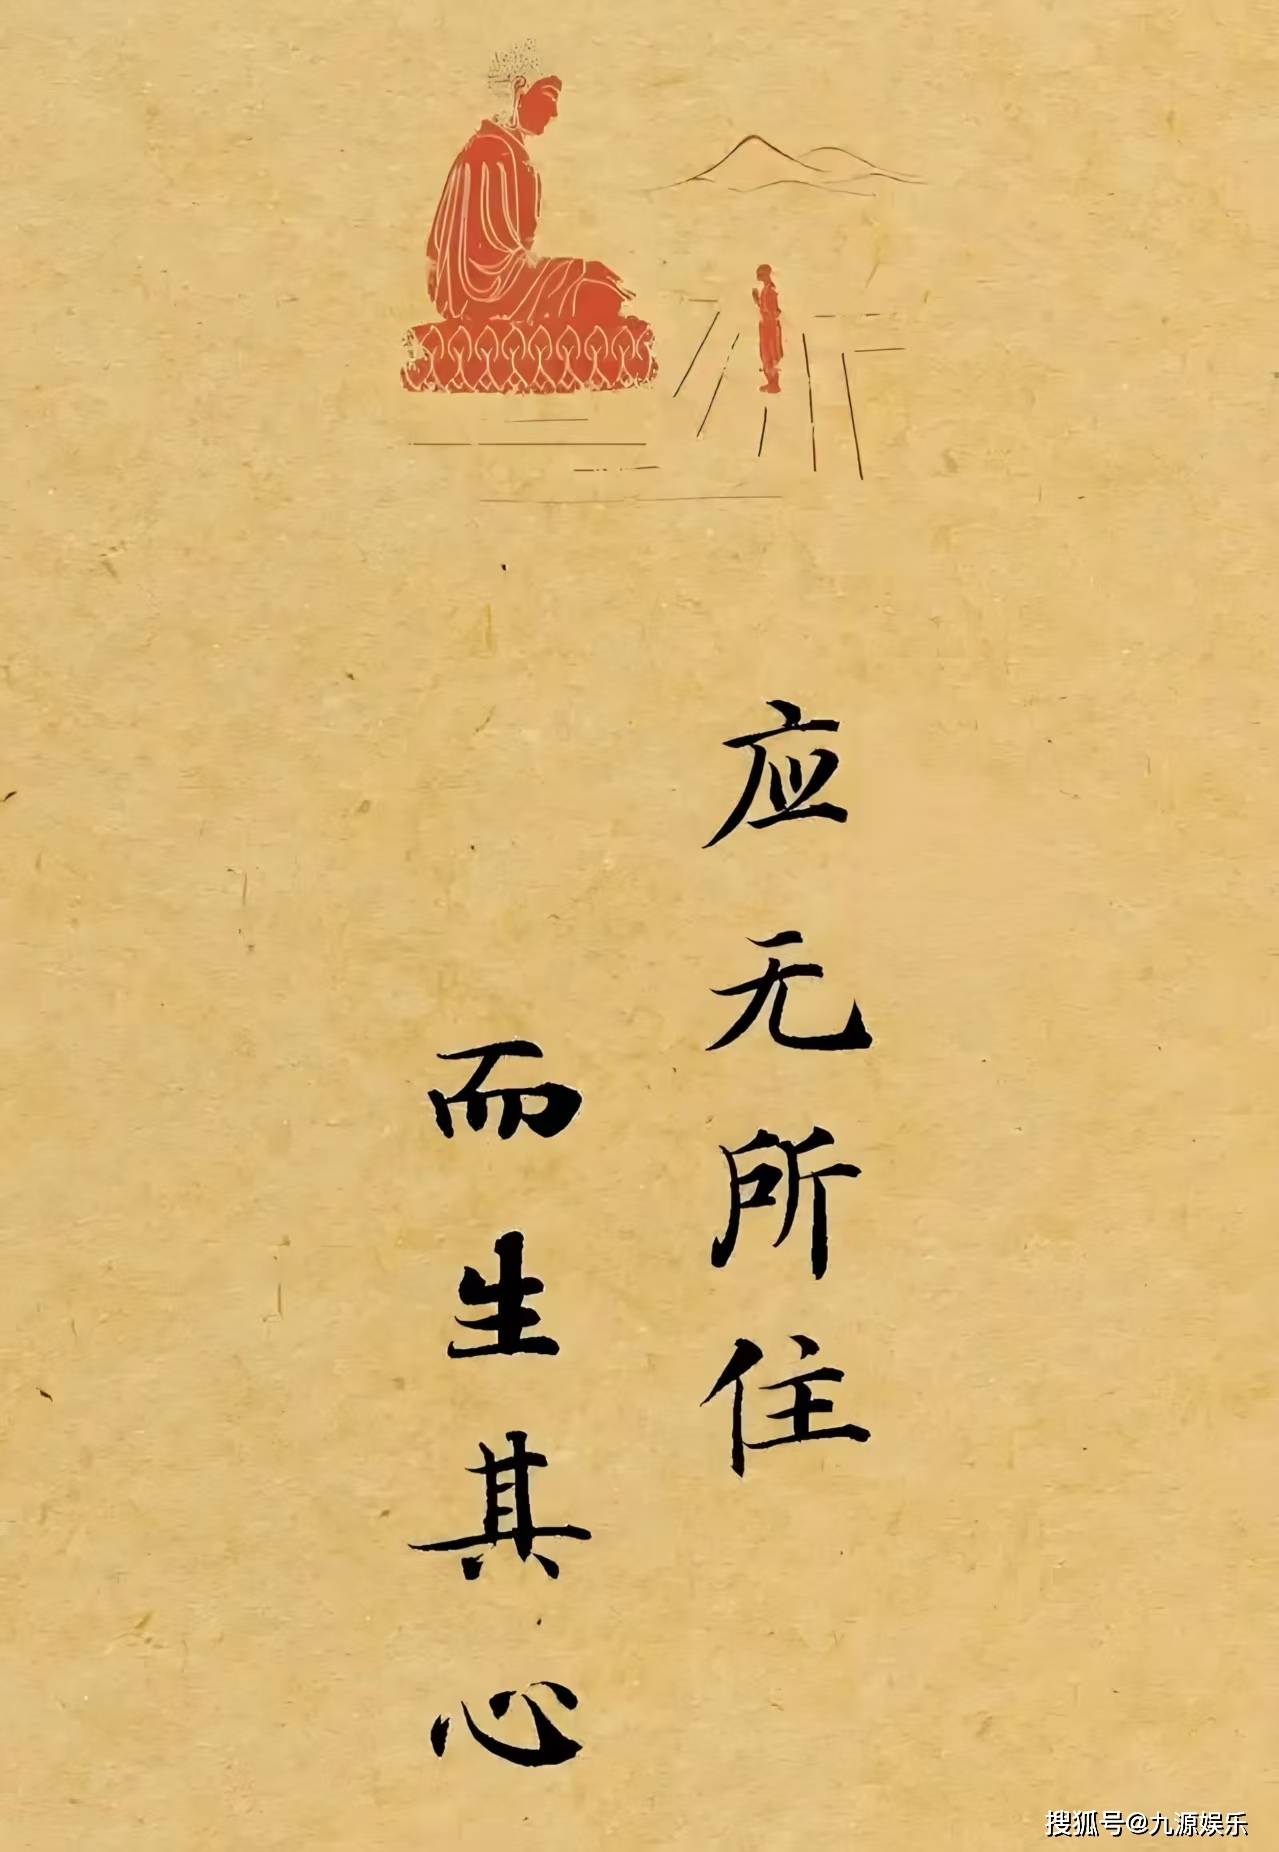 应无所住
而生其心
搜狐号@九源娱乐